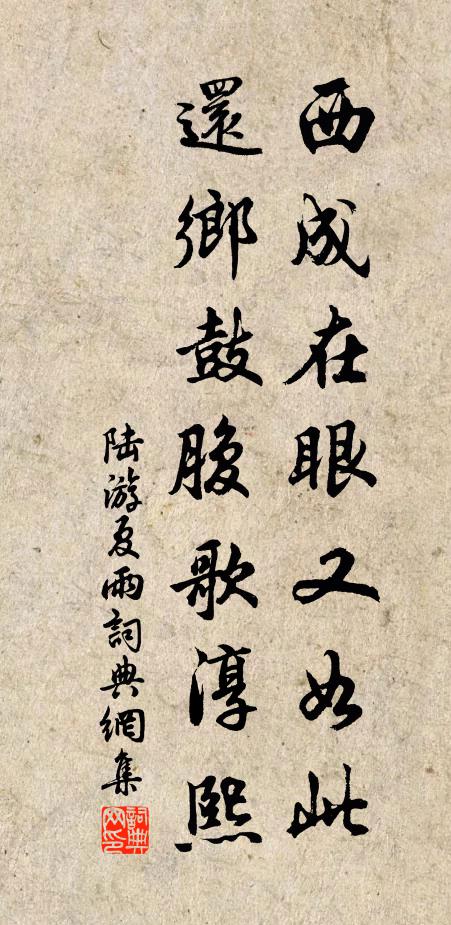 西成在眼又如此
還鄉鼓腹歌淳熙
陆游夏雨詞典網集
詞典网印